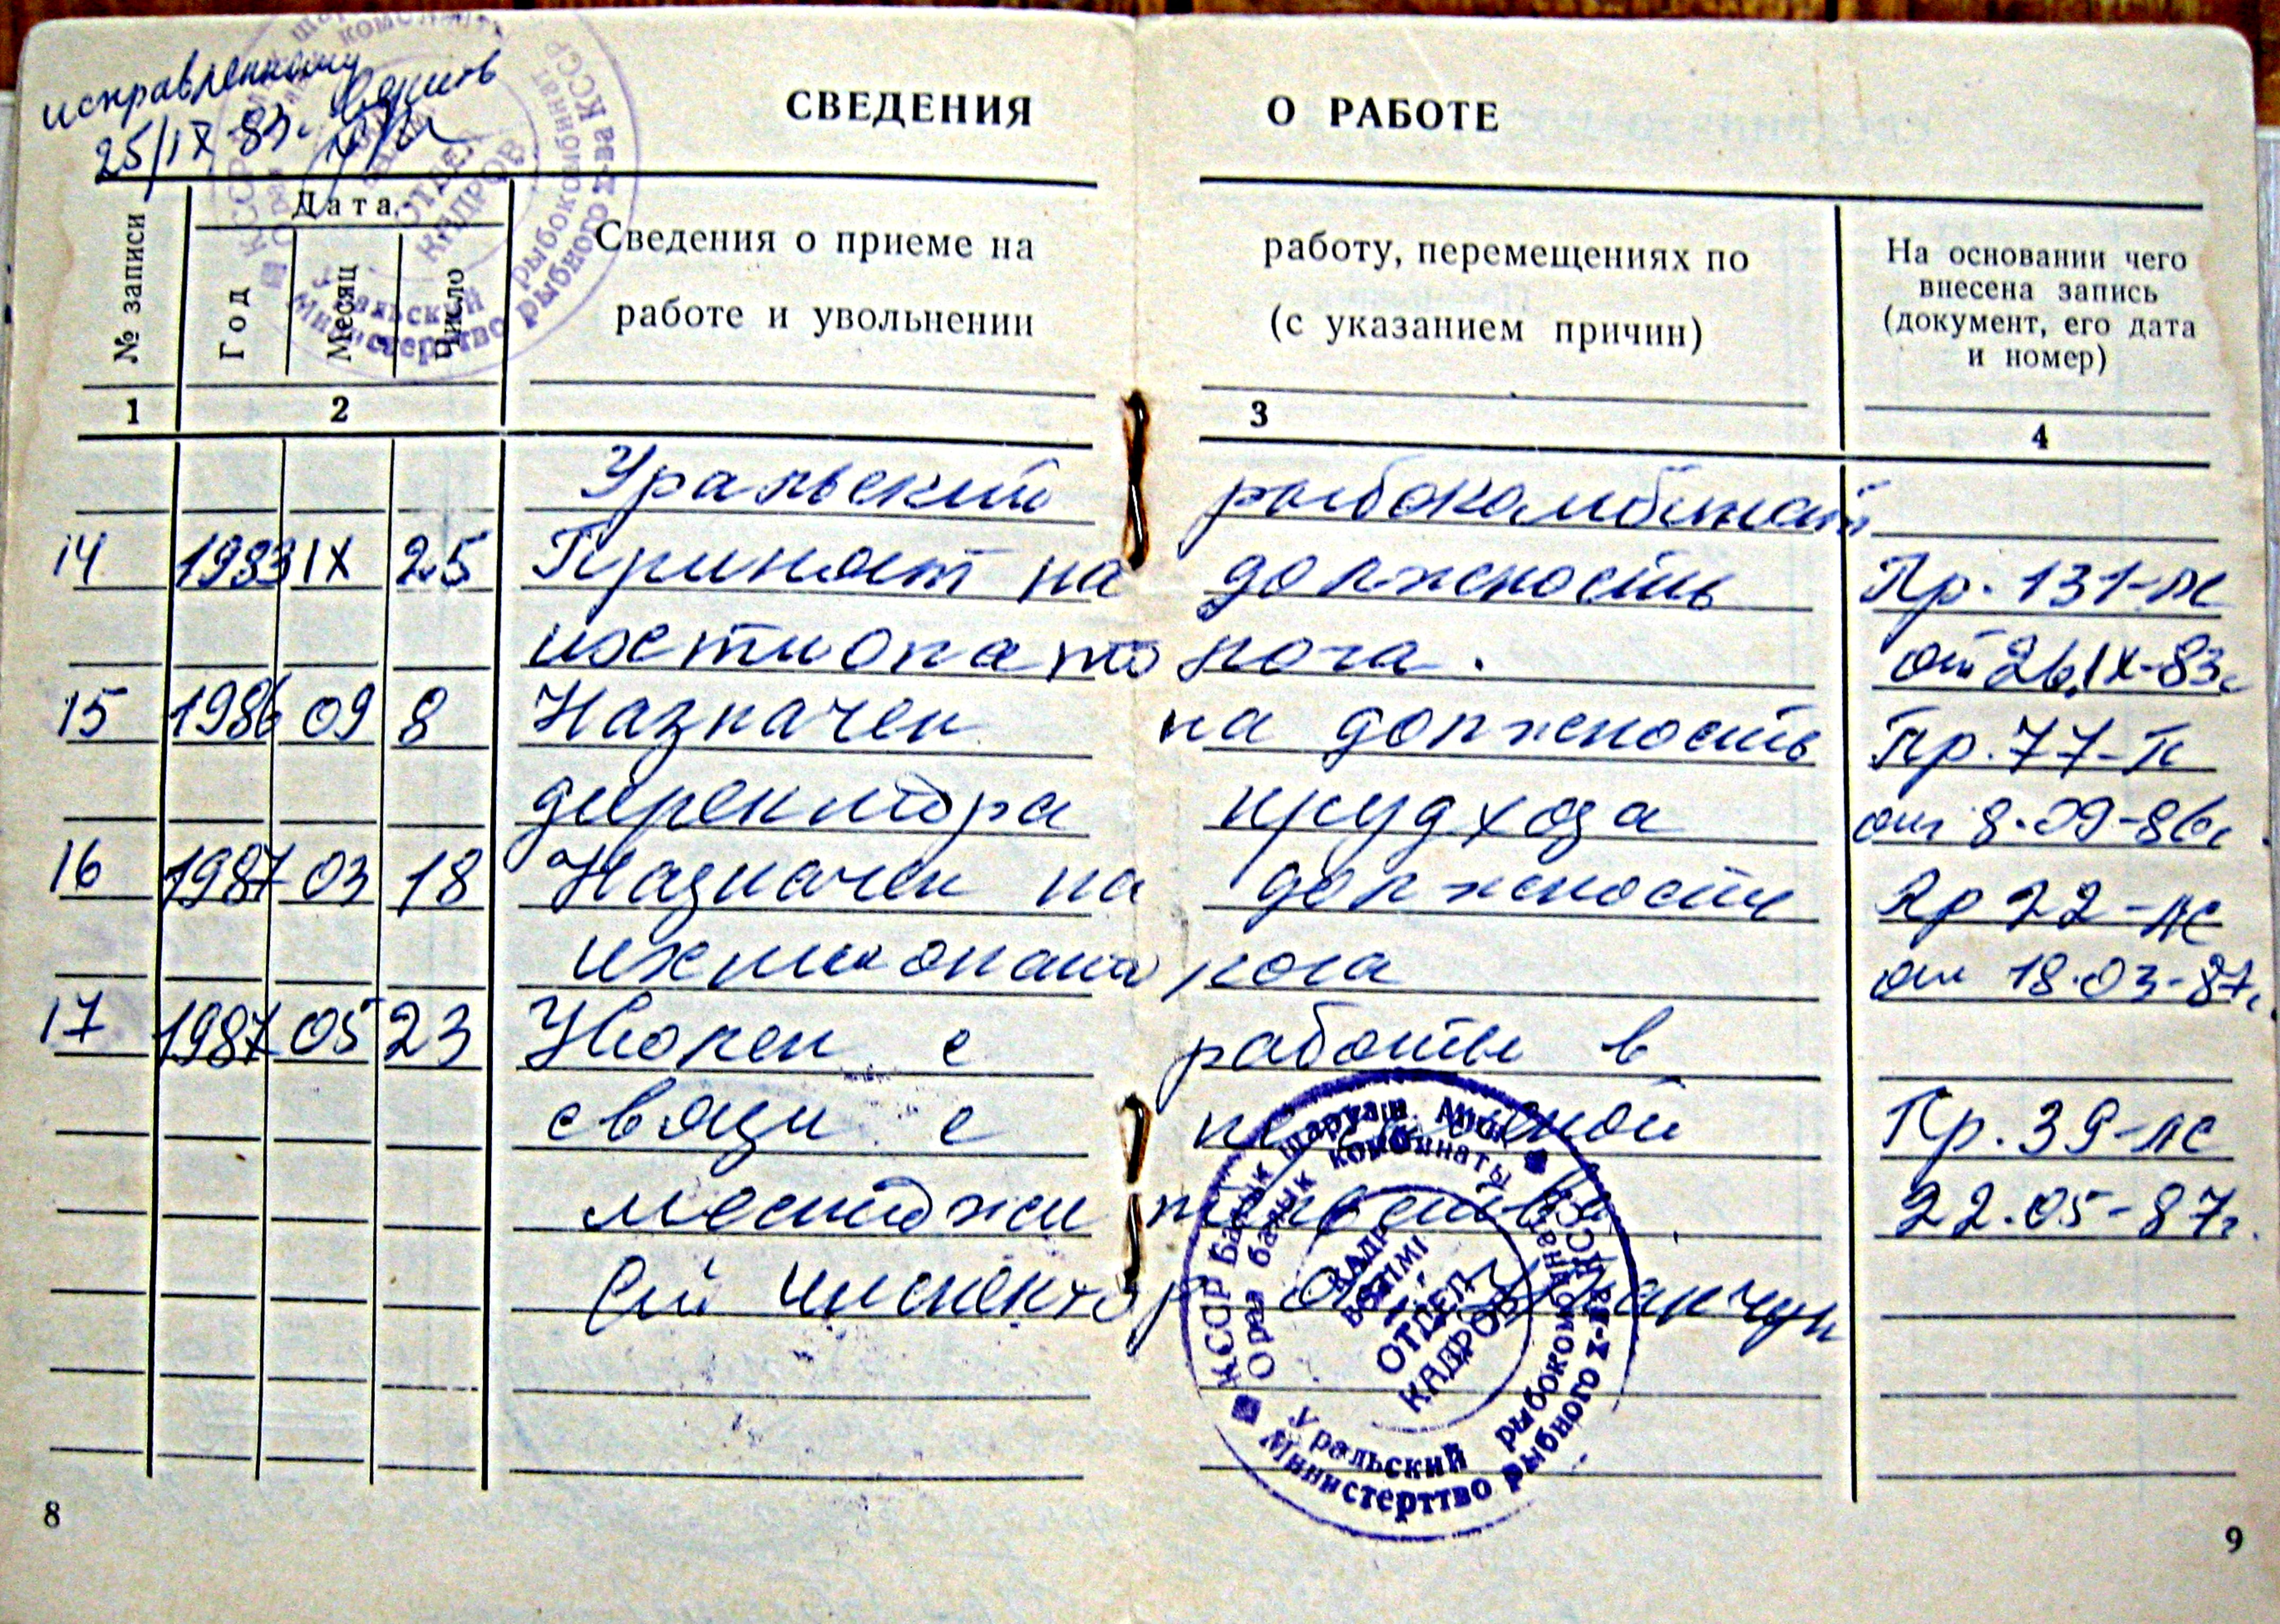 исправленному верить
25/IX 83г.
СВЕДЕНИЯ О РАБОТЕ
№ записи
Дата
Год
Месяц
Число
Сведения о приеме на работу, перемещениях по
работе и увольнении (с указанием причин)
На основании чего
внесена запись
(документ, его дата
и номер)
1 2 3 4
Уральский рыбокомбинат
14 1983 IX 25 Принят на должность Пр. 131-лс
ихтиопатолога. от 26.IX-83г
15 1986 09 8 Назначен на должность Пр. 77-п
директора прудхоза от 8.09-86г.
16 1987 03 18 Назначен на должность Пр 22-лс
ихтиопатолога от 18.03-87г.
17 1987 05 23 Уволен с работы в
связи с переменой Пр. 39-лс
местожительства. 22.05-87г.
Ст инспектор
КССР Балық шаруаш. Мин
Орал балық комбинаты
КАДР
БӨЛІМІ
ОТДЕЛ
КАДРОВ
Уральский рыбокомбинат
Министерттво рыбного х-ва КССР
ОТДЕЛ
КАДРОВ
Уральский рыбокомбинат
Министерттво рыбного х-ва КССР
8
9